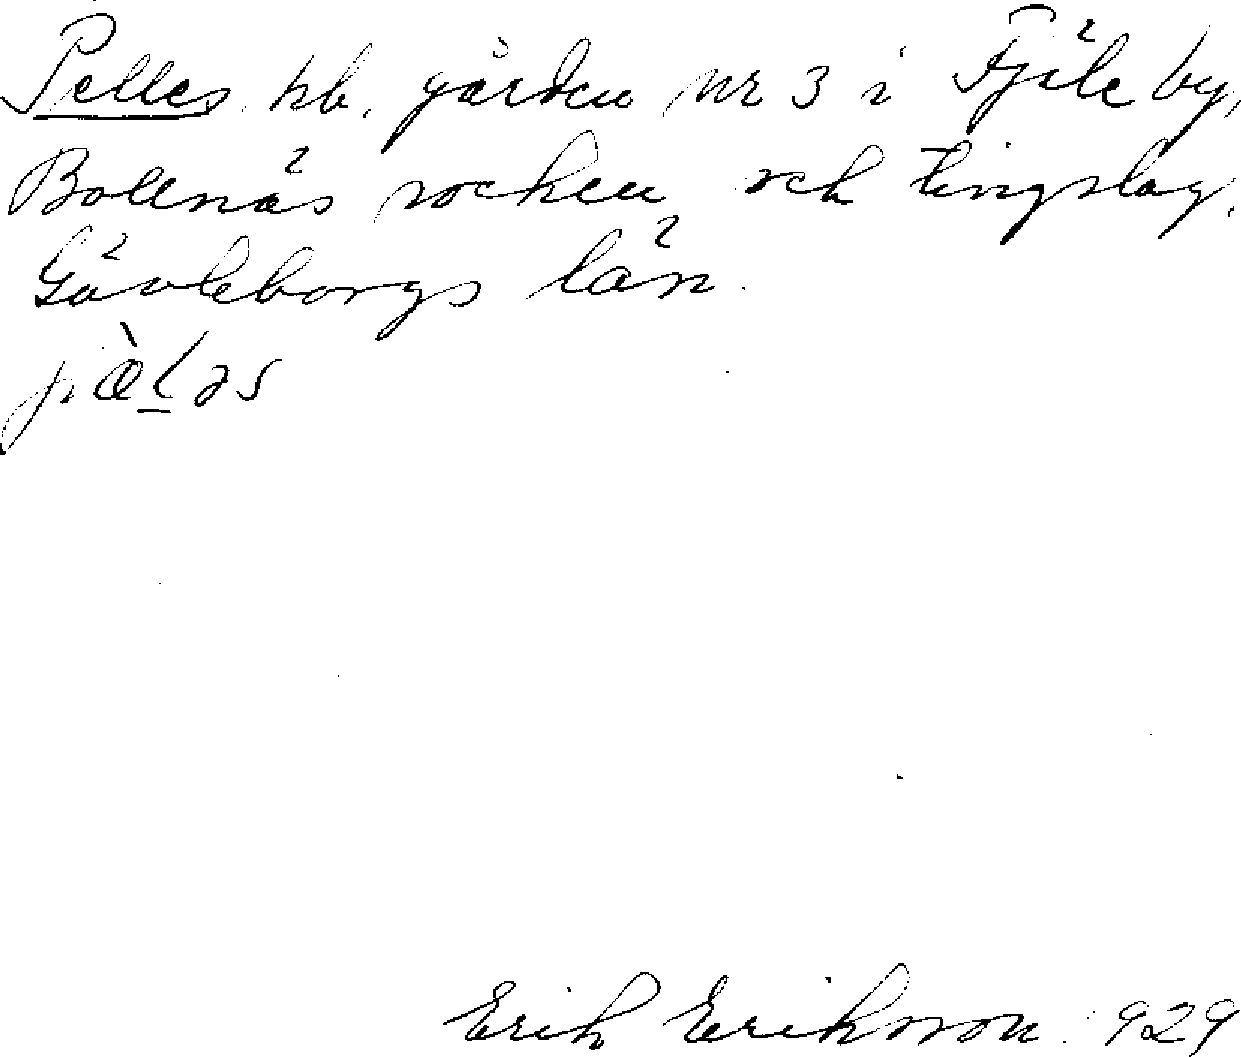 Pelles hb. gården nr 3 i Fjäle by,
Bollnäs socken och tingslag,
Gävleborgs län.
Erik Eriksson. 929